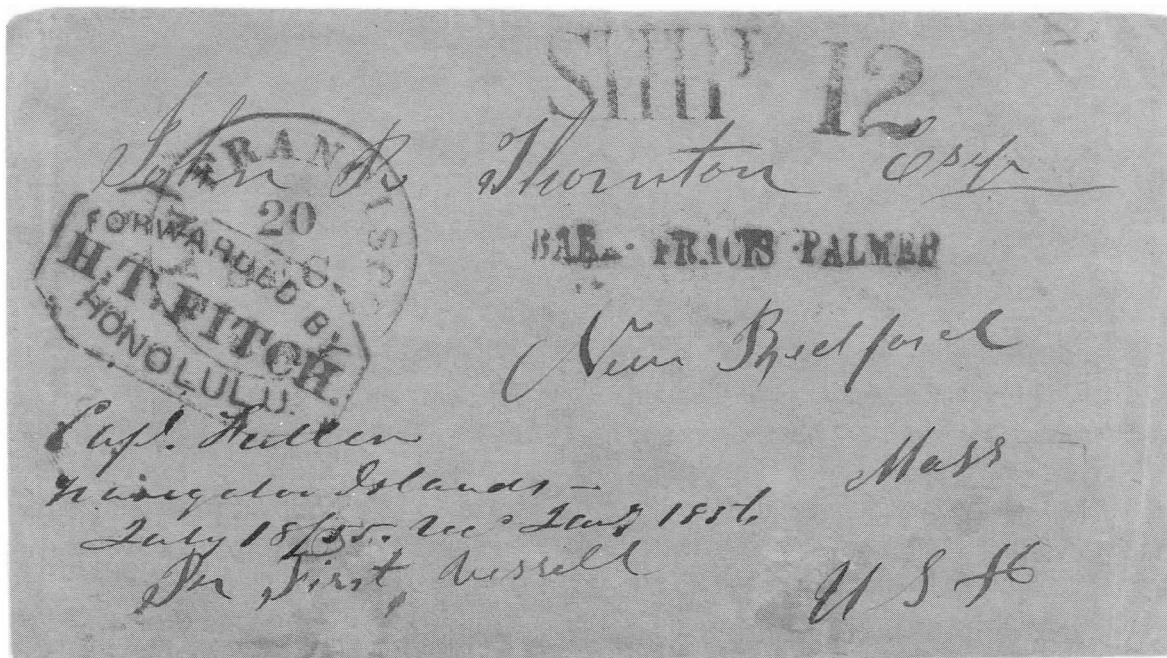 SHIP 12
John R Thornton Esqr
FRANCISCO
20
DEC
FORWARDED BY
H.T. FITCH.
HONOLULU.
BARK FRACIS PALMER
New Bedford
Mass
U S A
Capt. Fuller
Navigator Islands -
July 18/55. Rec'd Jany 1856.
Per First Vessell